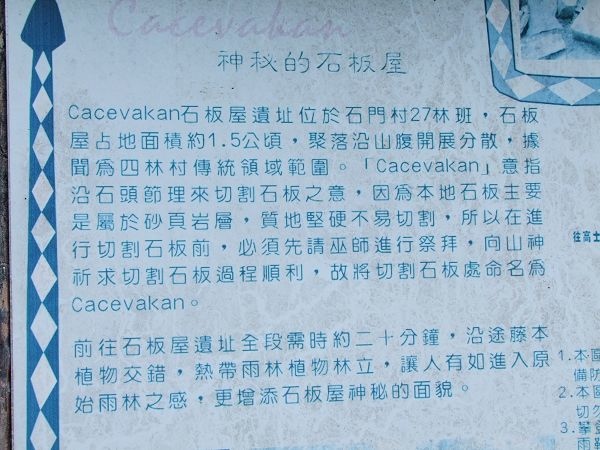 Cacevakan
神秘的石板屋
Cacevakan石板屋遺址位於石門村27林班，石板
屋占地面積約1.5公頃，聚落沿山腹開展分散，據
聞為四林村傳統領域範圍。「Cacevakan」意指
沿石頭節理來切割石板之意，因為本地石板主要
是屬於砂頁岩層，質地堅硬不易切割，所以在進
行切割石板前，必須先請巫師進行祭拜，向山神
祈求切割石板過程順利，故將切割石板處命名為
Cacevakan。
前往石板屋遺址全段需時約二十分鐘，沿途藤本
植物交錯，熱帶雨林植物林立，讓人有如進入原
始雨林之感，更增添石板屋神秘的面貌。
往高士
1.本區
備防
2.本區
切勿
3.攀登
雨鞋